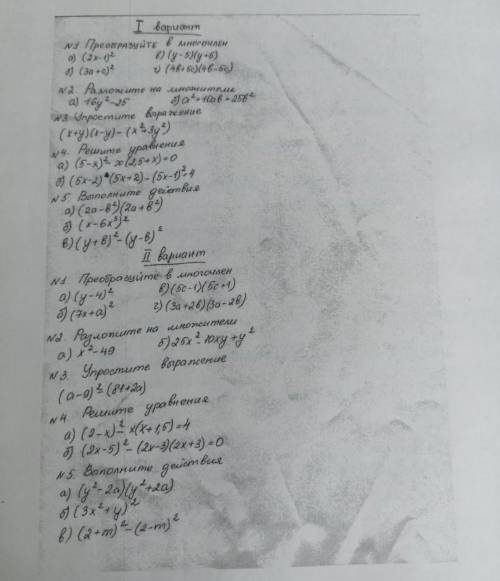 I вариант
№1. Преобразуйте в многочлен
а) (2х-1)² в) (у-5)(у+5)
б) (3а+с)² г) (4в+5с)(4в-5с)
№2. Разложите на множители
а) 16у²-25 б) а²+10ав+25в²
№3. Упростите выражение
(х+у)(х-у)-(х²+3у²)
№4. Решите уравнения
а) (5-х)²-х(2,5+х)=0
б) (5х-2)(5х+2)-(5х-1)²=4
№5. Выполните действия
а) (2а-в²)(2а+в²)
б) (х-6х³)²
в) (у+в)²-(у-в)²
II вариант
№1. Преобразуйте в многочлен
а) (у-4)² в) (5с-1)(5с+1)
б) (7х+а)² г) (3а+2в)(3а-2в)
№2. Разложите на множители
а) х²-49 б) 25х²-10ху+у²
№3. Упростите выражение
(а-9)²-(81+2а)
№4 Решите уравнения
а) (2-х)²-х(х+1,5)=4
б) (2х-5)²-(2х-3)(2х+3)=0
№5. Выполните действия
а) (у²-2а)(у²+2а)
б) (3х²+у)²
в) (2+m)²-(2-m)²